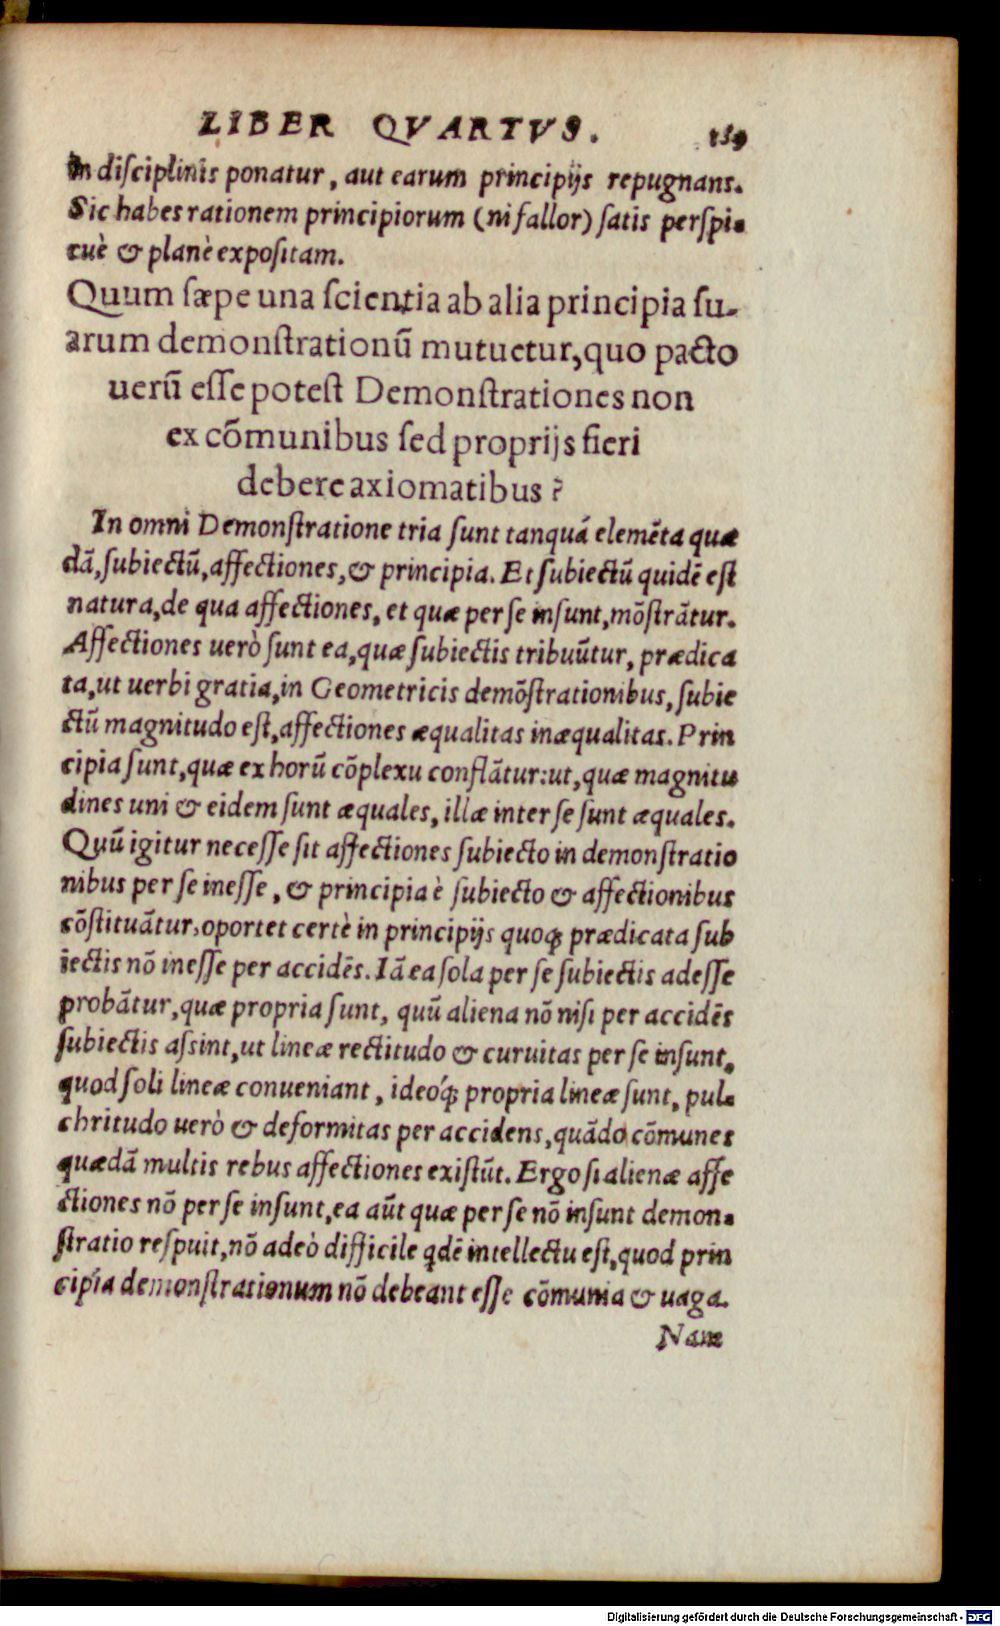 LIBER QVARTVS. 159
in diſciplinis ponatur, aut earum principijs repugnans.
Sic habes rationem principiorum (ni fallor) ſatis perſpi-
cuè & planè expoſitam.
Quum ſæpe una ſcientia ab alia principia ſu-
arum demonſtrationũ mutuetur, quo pacto
uerũ eſſe poteſt Demonſtrationes non
ex cõmunibus ſed proprijs fieri
debere axiomatibus?
In omni Demonſtratione tria ſunt tanquã elemẽta quæ
dã, ſubiectũ, affectiones, & principia. Et ſubiectũ quidẽ eſt
natura, de qua affectiones, et quæ per ſe inſunt, mõſtrãtur.
Affectiones uerò ſunt ea, quæ ſubiectis tribuũtur, prædica
ta, ut uerbi gratia, in Geometricis demõſtrationibus, ſubie
ctũ magnitudo eſt, affectiones æqualitas inæqualitas. Prin
cipia ſunt, quæ ex horũ cõplexu conflãtur: ut, quæ magnitu
dines uni & eidem ſunt æquales, illæ inter ſe ſunt æquales.
Quũ igitur neceſſe ſit affectiones ſubiecto in demonſtratio
nibus per ſe ineſſe, & principia è ſubiecto & affectionibus
cõſtituãtur, oportet certè in principijs quoqꝫ prædicata ſub
iectis nõ ineſſe per accidẽs. Iã ea ſola per ſe ſubiectis adeſſe
probãtur, quæ propria ſunt, quũ aliena nõ niſi per accidẽs
ſubiectis aſsint, ut lineæ rectitudo & curuitas per ſe inſunt,
quod ſoli lineæ conueniant, ideóqꝫ propria lineæ ſunt, pul-
chritudo uerò & deformitas per accidens, quãdo cõmunes
quædã multis rebus affectiones exiſtũt. Ergo ſi alienæ affe
ctiones nõ per ſe inſunt, ea aũt quæ per ſe nõ inſunt demon-
ſtratio reſpuit, nõ adeò difficile qdẽ intellectu eſt, quod prin
cipia demonſtrationum nõ debeant eſſe cõmunia & uaga.
Nam
Digitalisierung gefördert durch die Deutsche Forschungsgemeinschaft - DFG